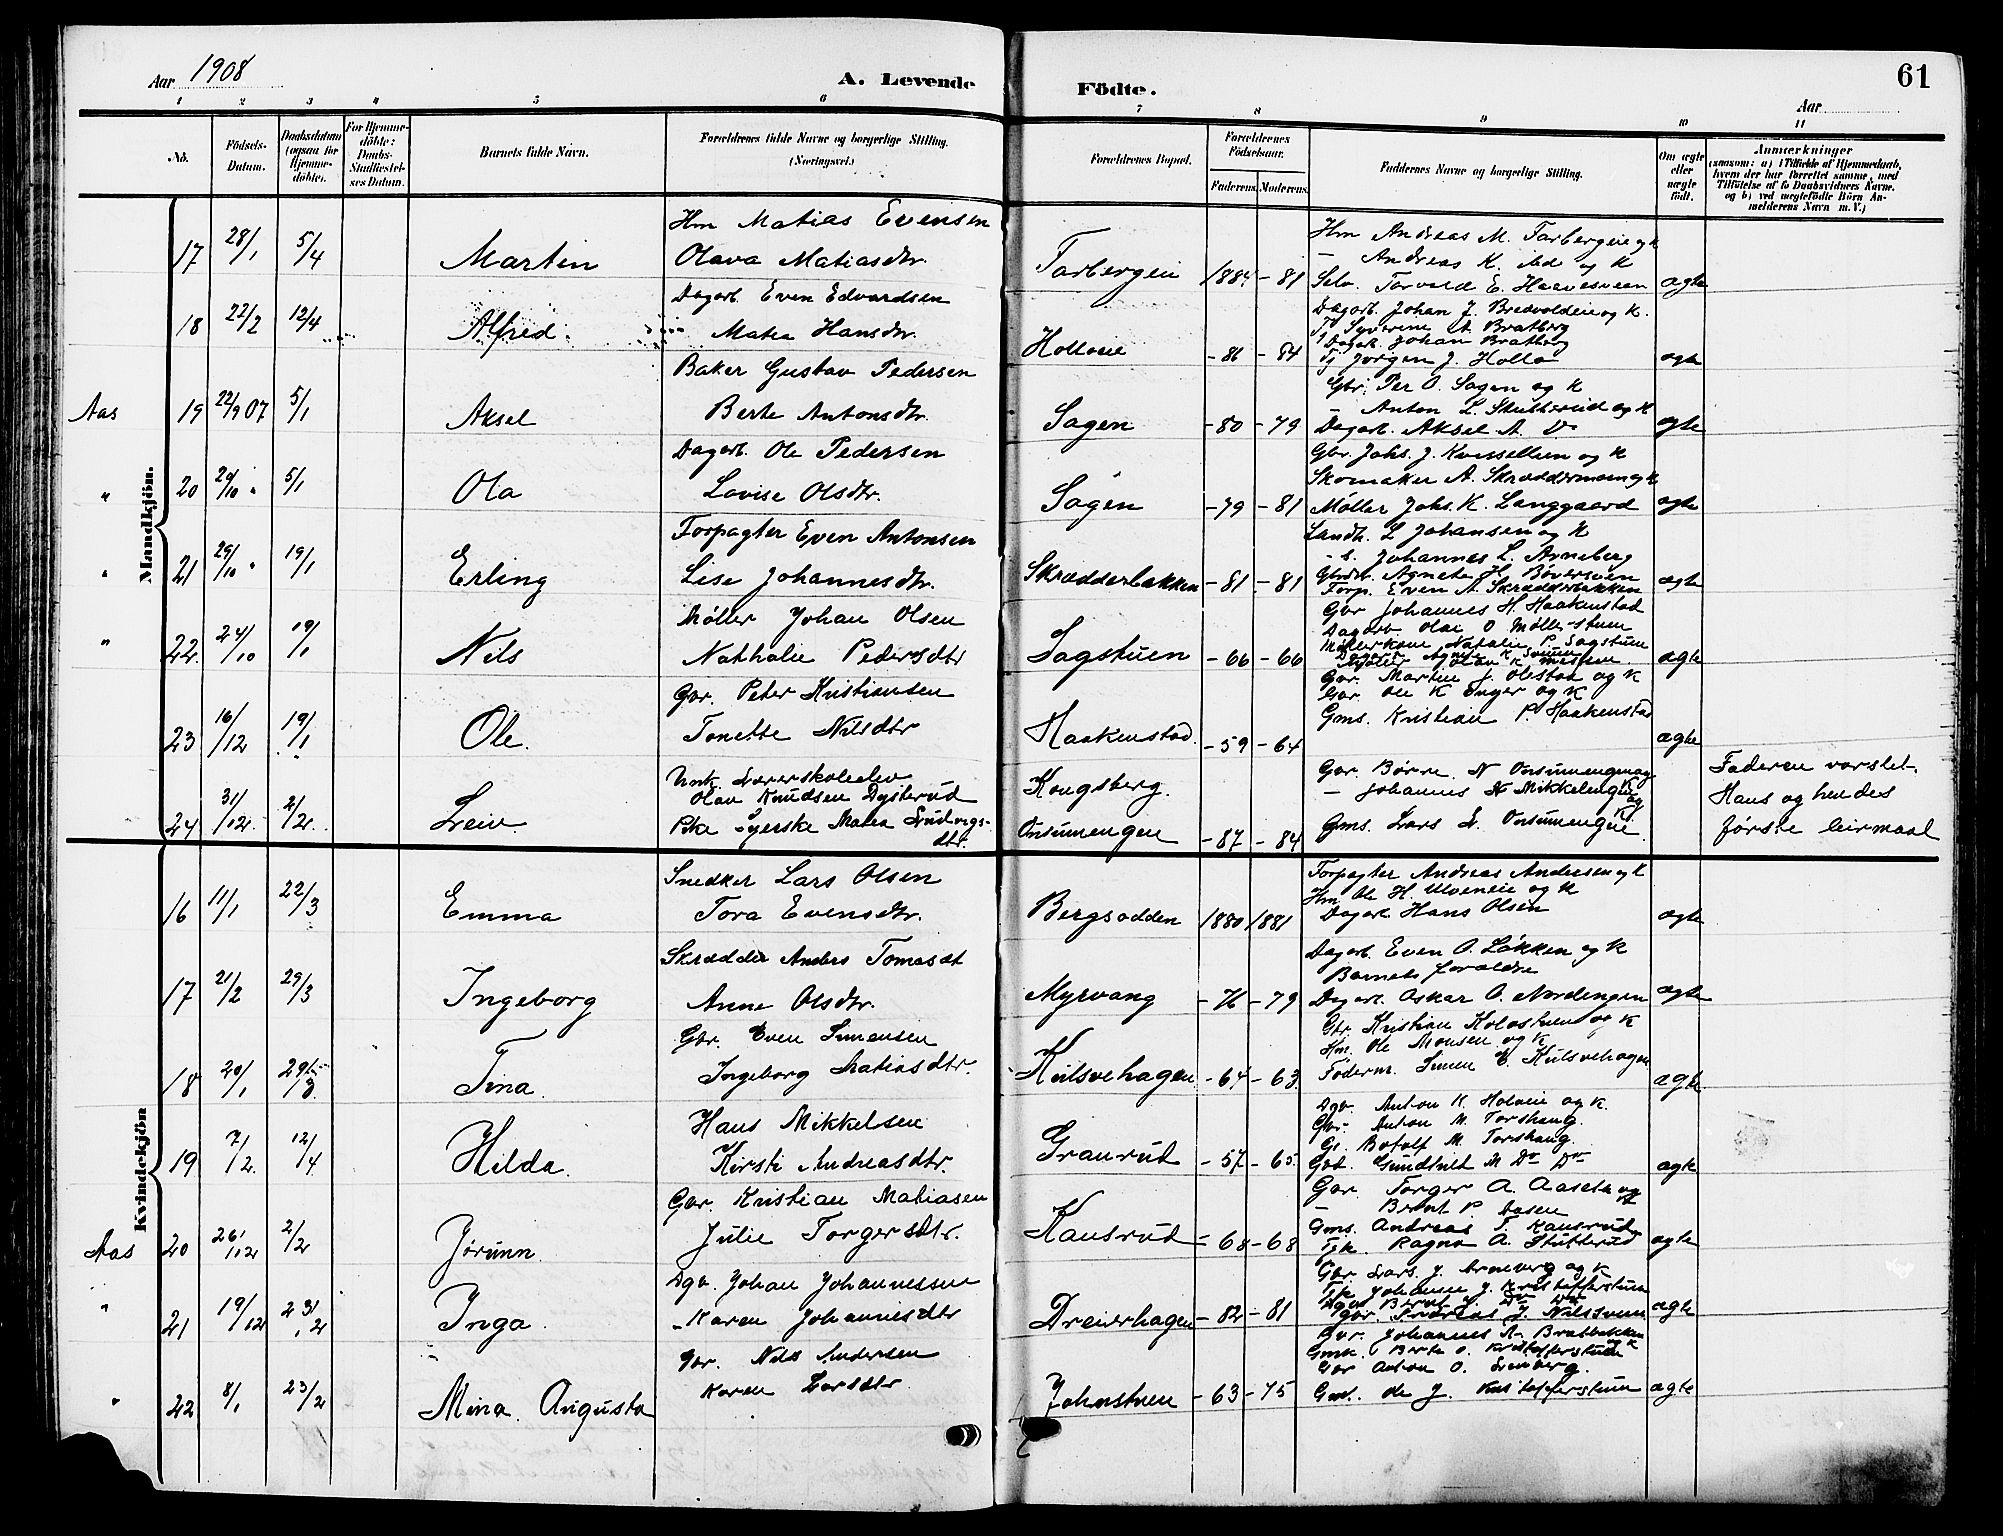 Aar 1908
A. Levende
Födte.
61
Aar
1 2 3 4 5 6 7 8 9 10 11
No.
Födsels-Datum.
Daabsdatum (ogsaa for Hjemme-döbte).
For Hjemme-döbte: Daabs-Stadfæstelses Datum.
Barnets fulde Navn.
Forældrenes fulde Navne og borgerlige Stilling. (Næringsvei.)
Forældrenes Bopæl.
Forældrenes Födselsaar.
Faderens. Moderens.
Faddernes Navne og borgerlige Stilling.
Om ægte eller uægte födt.
Anmærkninger (saasom: a) i Tilfælde af Hjemmedaab, hvem der har forrettet samme, med Tilföielse af to Daabsvidners Navne. og b) ved uægtefödte Börn Anmelderens Navn m. V.)
Mandkjön.
17 28/1 5/4 Martin
Hm Matias Evensen
Olava Matiasdtr.
Tarbergeie 1884 - 81
Hm Andreas M. Tarbergeie og k
- Andreas K. do og K
Selv. Torvald E. Haavesveen
ægte
18 22/2 12/4 Alfred.
Dagarb. Even Edvardsen
Matea Hansdtr.
Holloeie - 86 - 84
Dagarb. Johan J. Bredvoldeie og K.
Tj Syverine A Bratberg
Dagarb. Johan Bratberg
Tj Jørgen J. Hollo
ægte
Aas 19 22/9 07 5/1 Aksel
Baker Gustav Pedersen
Berte Antonsdtr.
Sagen - 80 - 79
Gbr. Per O. Sagen og K
- Anton L. Stutterud og K
Dagarb. Aksel A. Do
ægte
" 20 20/10 " 5/1 Ola
Dagarb. Ole Pedersen
Lovise Olsdtr.
Sagen - 79 - 81
Gbr. Johs. J. Kvessellien og K
Skomaker A. Skræddermoen og K
Møller Johs. K. Langgaard
ægte
" 21 29/10 " 19/1 Erling
Forpagter Even Antonsen
Lise Johannesdtr.
Skrædderbakken - 81 - 81
Landh. L Johansen og K
- s. Johannes L. Arneberg
Gbrdtr. Agnete H. Bøversveen
Forp. Even A. Skrædderbakken
ægte
" 22. 24/10 19/1 Nils
Møller Johan Olsen
Nathalie Pedersdtr
Sagstuen - 66 - 66
Gbr Johannes H. Haakenstad
Dagarb. Olai O Møllerstuen
Møllerkone Natalie P. Sagstuen
ægte
23 16/12 19/1 Ole.
Gbr. Peter Kristiansen
Tonette Nilsdtr
Haakenstad. - 59 - 64
Gbr. Martin J. Olestad og K
Gbr Ole K Unger og K
Gms. Kristian P. Haakenstad
ægte
24 31/12 2/2 Leiv.
Unk. Lærerskoleelev
Olav Knudsen Dysterud
Pike Syerske Matea Ludvigs-
dtr.
Kongsberg.
Onsumengen - 87 - 84
Gbr. Børre N Onsumengen og
- Johannes N Mikkelengen og
K
Gms. Lars L. Onsumengeie
Faderen vorslet.
Hans og hendes
første leirmaal
Kvindekjön
16 11/1 22/3 Emma
Snedker Lars Olsen
Tora Evensdtr.
Bergsodden 1880 1881
Forpagter Andreas Andersen og k
Hm Ole H. Ulveneie og K
Dagarb Hans Olsen
ægte
17 21/2 29/3 Ingeborg
Skrædder Anders Tomasst
Anne Olsdtr.
Myrvang - 76 - 79
Dagarb. Even O. Løkken og K
Barnets forældre
Dagarb. Oskar O. Nordengen
ægte
18 20/1 29/3 Tina.
Gbr. Even Simensen
Ingeborg Matiasdtr.
Kulsvehagen - 64 - 63
Gbr. Kristian Kolostuen og K
Hm. Ole Monsen og K
Føderm. Simen E. Kulsvehagen
ægte
19 7/2. 12/4 Hilda.
Hans Mikkelsen
Kirsti Andreasdtr.
Granrud - 57 - 65.
Dgb. Anton K. Holoeie og K.
Gbr. Anton M. Torshaug.
Gs. Botolf M. Torshaug.
Gdt. Gundhild M Do Do
ægte
Aas 20 26/12 2/2 Jørunn.
Gbr. Kristian Matiasen
Julie Torgersdtr.
Kausrud - 68 - 68
Gbr. Torger A. Aaseth og
- Bernt P. Aasen
Gms. Andreas T. Kausrud
Tjk. Ragna A. Stutterud
ægte
" 21 19/12 23/2 Inga.
Dgb. Johan Johannessen
- Karen Johannesdtr
Dreierhagen - 82 - 81
Gbr. Lars J. Arneberg og k
Tjk Johanne J. Kristofferstuen
Gbr. Andreas J. Nilssveen
ægte
" 22 8/1 23/2 Mina Augusta
Gbr. Nils Andersen
Karen Larsdtr
Johnstuen - 63 - 75
Gbr. Johannes A. Bratbakken
og K
Gmk. Berte O. Kristofferstuen
Gbr Anton O. Lunberg.
Gml. Ole J. Kristofferstuen
ægte